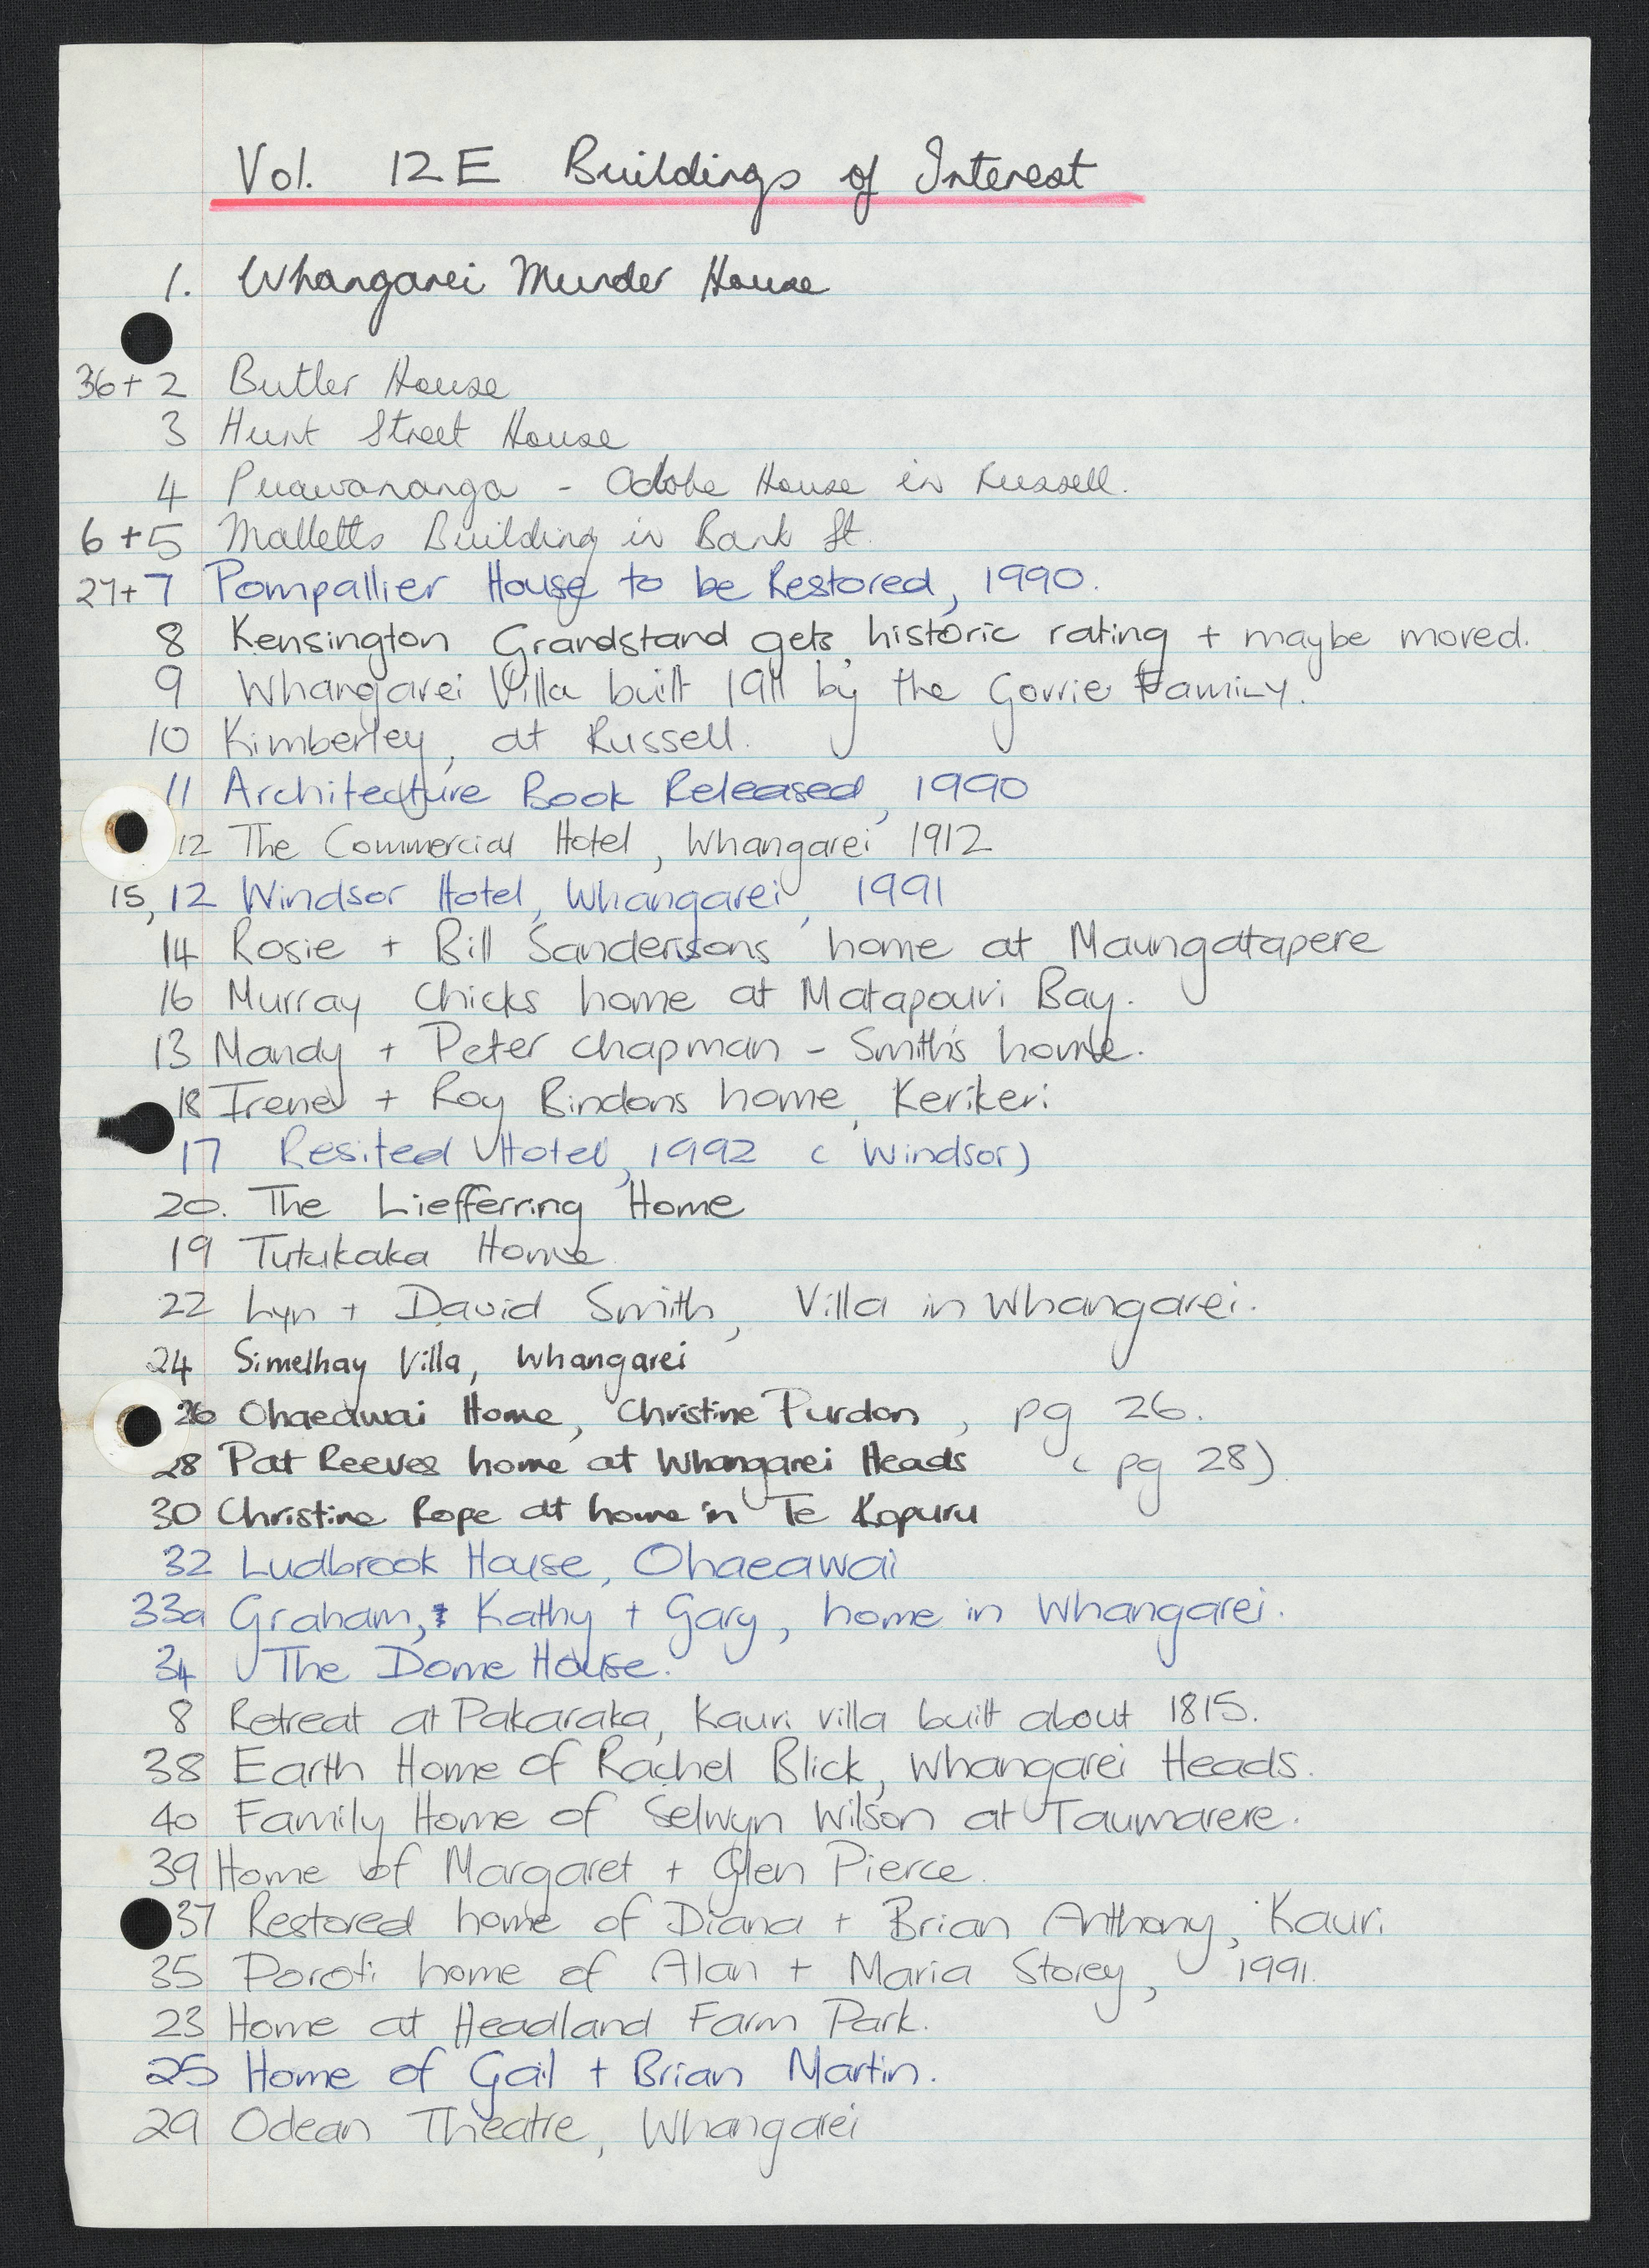 Vol. 12E Buildings of Interest
1. Whangarei Murder House
36+ 2 Butler House
3 Hunt Street House
4 Puawananga - Adobe House in Russell.
6 + 5 Malletts Building in Bank St.
27+ 7 Pompallier House to be Restored, 1990.
8 Kensington Grandstand gets historic rating + maybe moved.
9 Whangarei Villa built 1911 by the Gorrie Family.
10 Kimberley, at Russell.
11 Architecture Book Released, 1990
12 The Commercial Hotel, Whangarei 1912
15, 12 Windsor Hotel, Whangarei, 1991
14 Rosie + Bill Sandersons home at Maungatapere
16 Murray Chicks home at Matapouri Bay.
13 Mandy + Peter Chapman - Smith's home.
18 Irene + Roy Bindons home, Kerikeri
17 Resited Hotel, 1992 (Windsor)
20. The Liefferring Home
19 Tutukaka Home
22 Lyn + David Smith, Villa in Whangarei.
24 Simelhay Villa, Whangarei
26 Ohaeawai Home, Christine Purdon, pg 26.
28 Pat Reeves home at Whangarei Heads (pg 28)
30 Christine Rope at home in Te Kopuru
32 Ludbrook House, Ohaeawai
33a Graham, Kathy + Gary, home in Whangarei.
34 The Dome House.
8 Retreat at Pakaraka, Kauri villa built about 1815.
38 Earth Home of Rachel Blick, Whangarei Heads.
40 Family Home of Selwyn Wilson at Taumarere.
39 Home of Margaret + Glen Pierce.
37 Restored home of Diana + Brian Anthony, Kauri
35 Poroti home of Alan + Maria Storey, 1991.
23 Home at Headland Farm Park.
25 Home of Gail + Brian Martin.
29 Odean Theatre, Whangarei